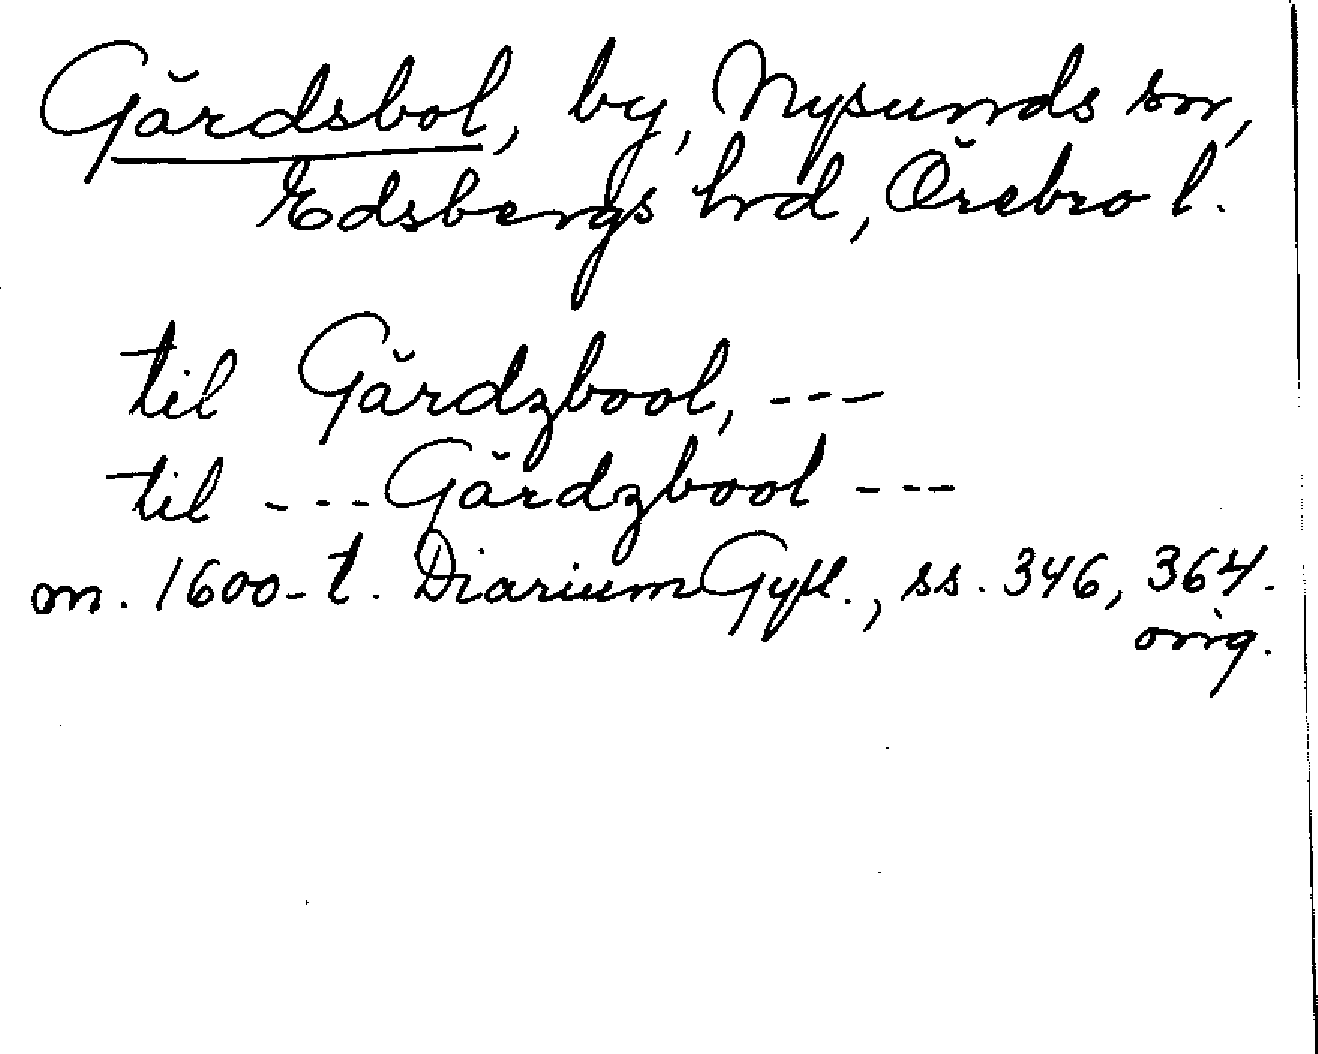 Gärdsbol, by, Nysunds sn,
Edsbergs hrd, Örebro l.
til Gärdzbool, ---
til --- Gärdzbool ---
m. 1600-t. Diarium Gyll., ss. 346, 364.
orig.